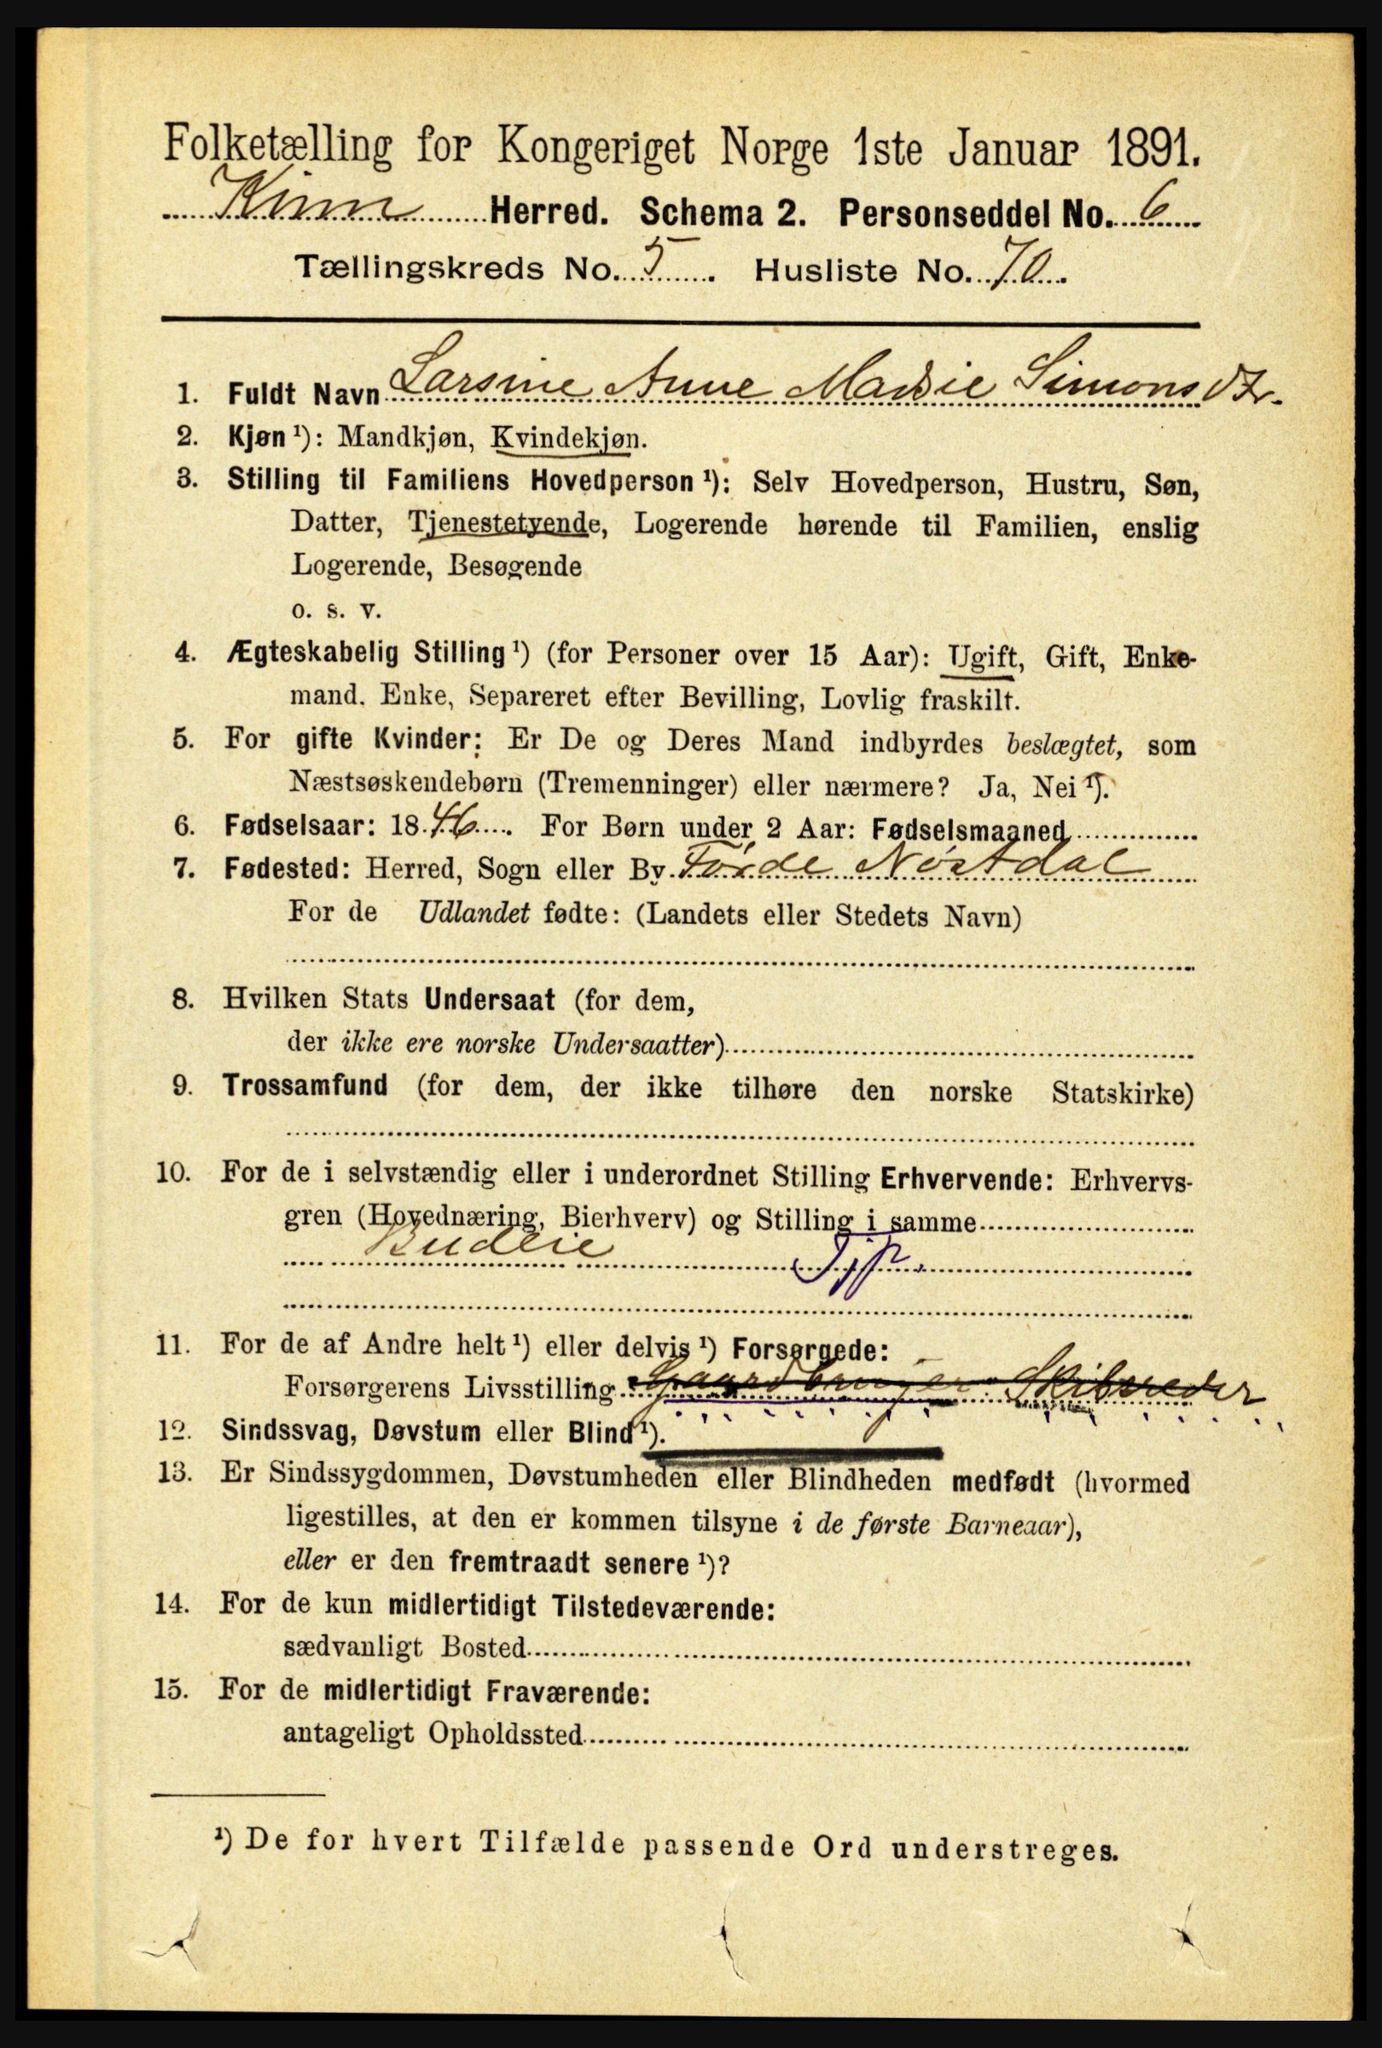 Folketælling for Kongeriget Norge 1ste Januar 1891.
Kinn Herred. Schema 2. Personseddel No. 6
Tællingskreds No. 5. Husliste No. 70.
1. Fuldt Navn Larsine Anne Simonsdtr.
2. Kjøn ¹): Mandkjøn, Kvindekjøn.
3. Stilling til Familiens Hovedperson ¹): Selv Hovedperson, Hustru, Søn,
Datter, Tjenestetyende, Logerende hørende til Familien, enslig
Logerende, Besøgende
o. s. v.
4. Ægteskabelig Stilling ¹) (for Personer over 15 Aar): Ugift, Gift, Enke-
mand, Enke, Separeret efter Bevilling, Lovlig fraskilt.
5. For gifte Kvinder: Er De og Deres Mand indbyrdes beslægtet, som
Næstsøskendebørn (Tremenninger) eller nærmere? Ja, Nei ¹).
6. Fødselsaar: 1846. For Børn under 2 Aar: Fødselsmaaned
7. Fødested: Herred, Sogn eller By Førde Nøstdal
For de Udlandet fødte: (Landets eller Stedets Navn)
8. Hvilken Stats Undersaat (for dem,
der ikke ere norske Undersaatter)
9. Trossamfund (for dem, der ikke tilhøre den norske Statskirke)
10. For de i selvstændig eller i underordnet Stilling Erhvervende: Erhvervs-
gren (Hovednæring, Bierhverv) og Stilling i samme
Budeie
11. For de af Andre helt ¹) eller delvis ¹) Forsørgede:
Forsørgerens Livsstilling Gaardbruger Skibsreder
12. Sindssvag, Døvstum eller Blind ¹).
13. Er Sindssygdommen, Døvstumheden eller Blindheden medfødt (hvormed
ligestilles, at den er kommen tilsyne i de første Barneaar),
eller er den fremtraadt senere ¹)?
14. For de kun midlertidigt Tilstedeværende:
sædvanligt Bosted
15. For de midlertidigt Fraværende:
antageligt Opholdssted
¹) De for hvert Tilfælde passende Ord understreges.